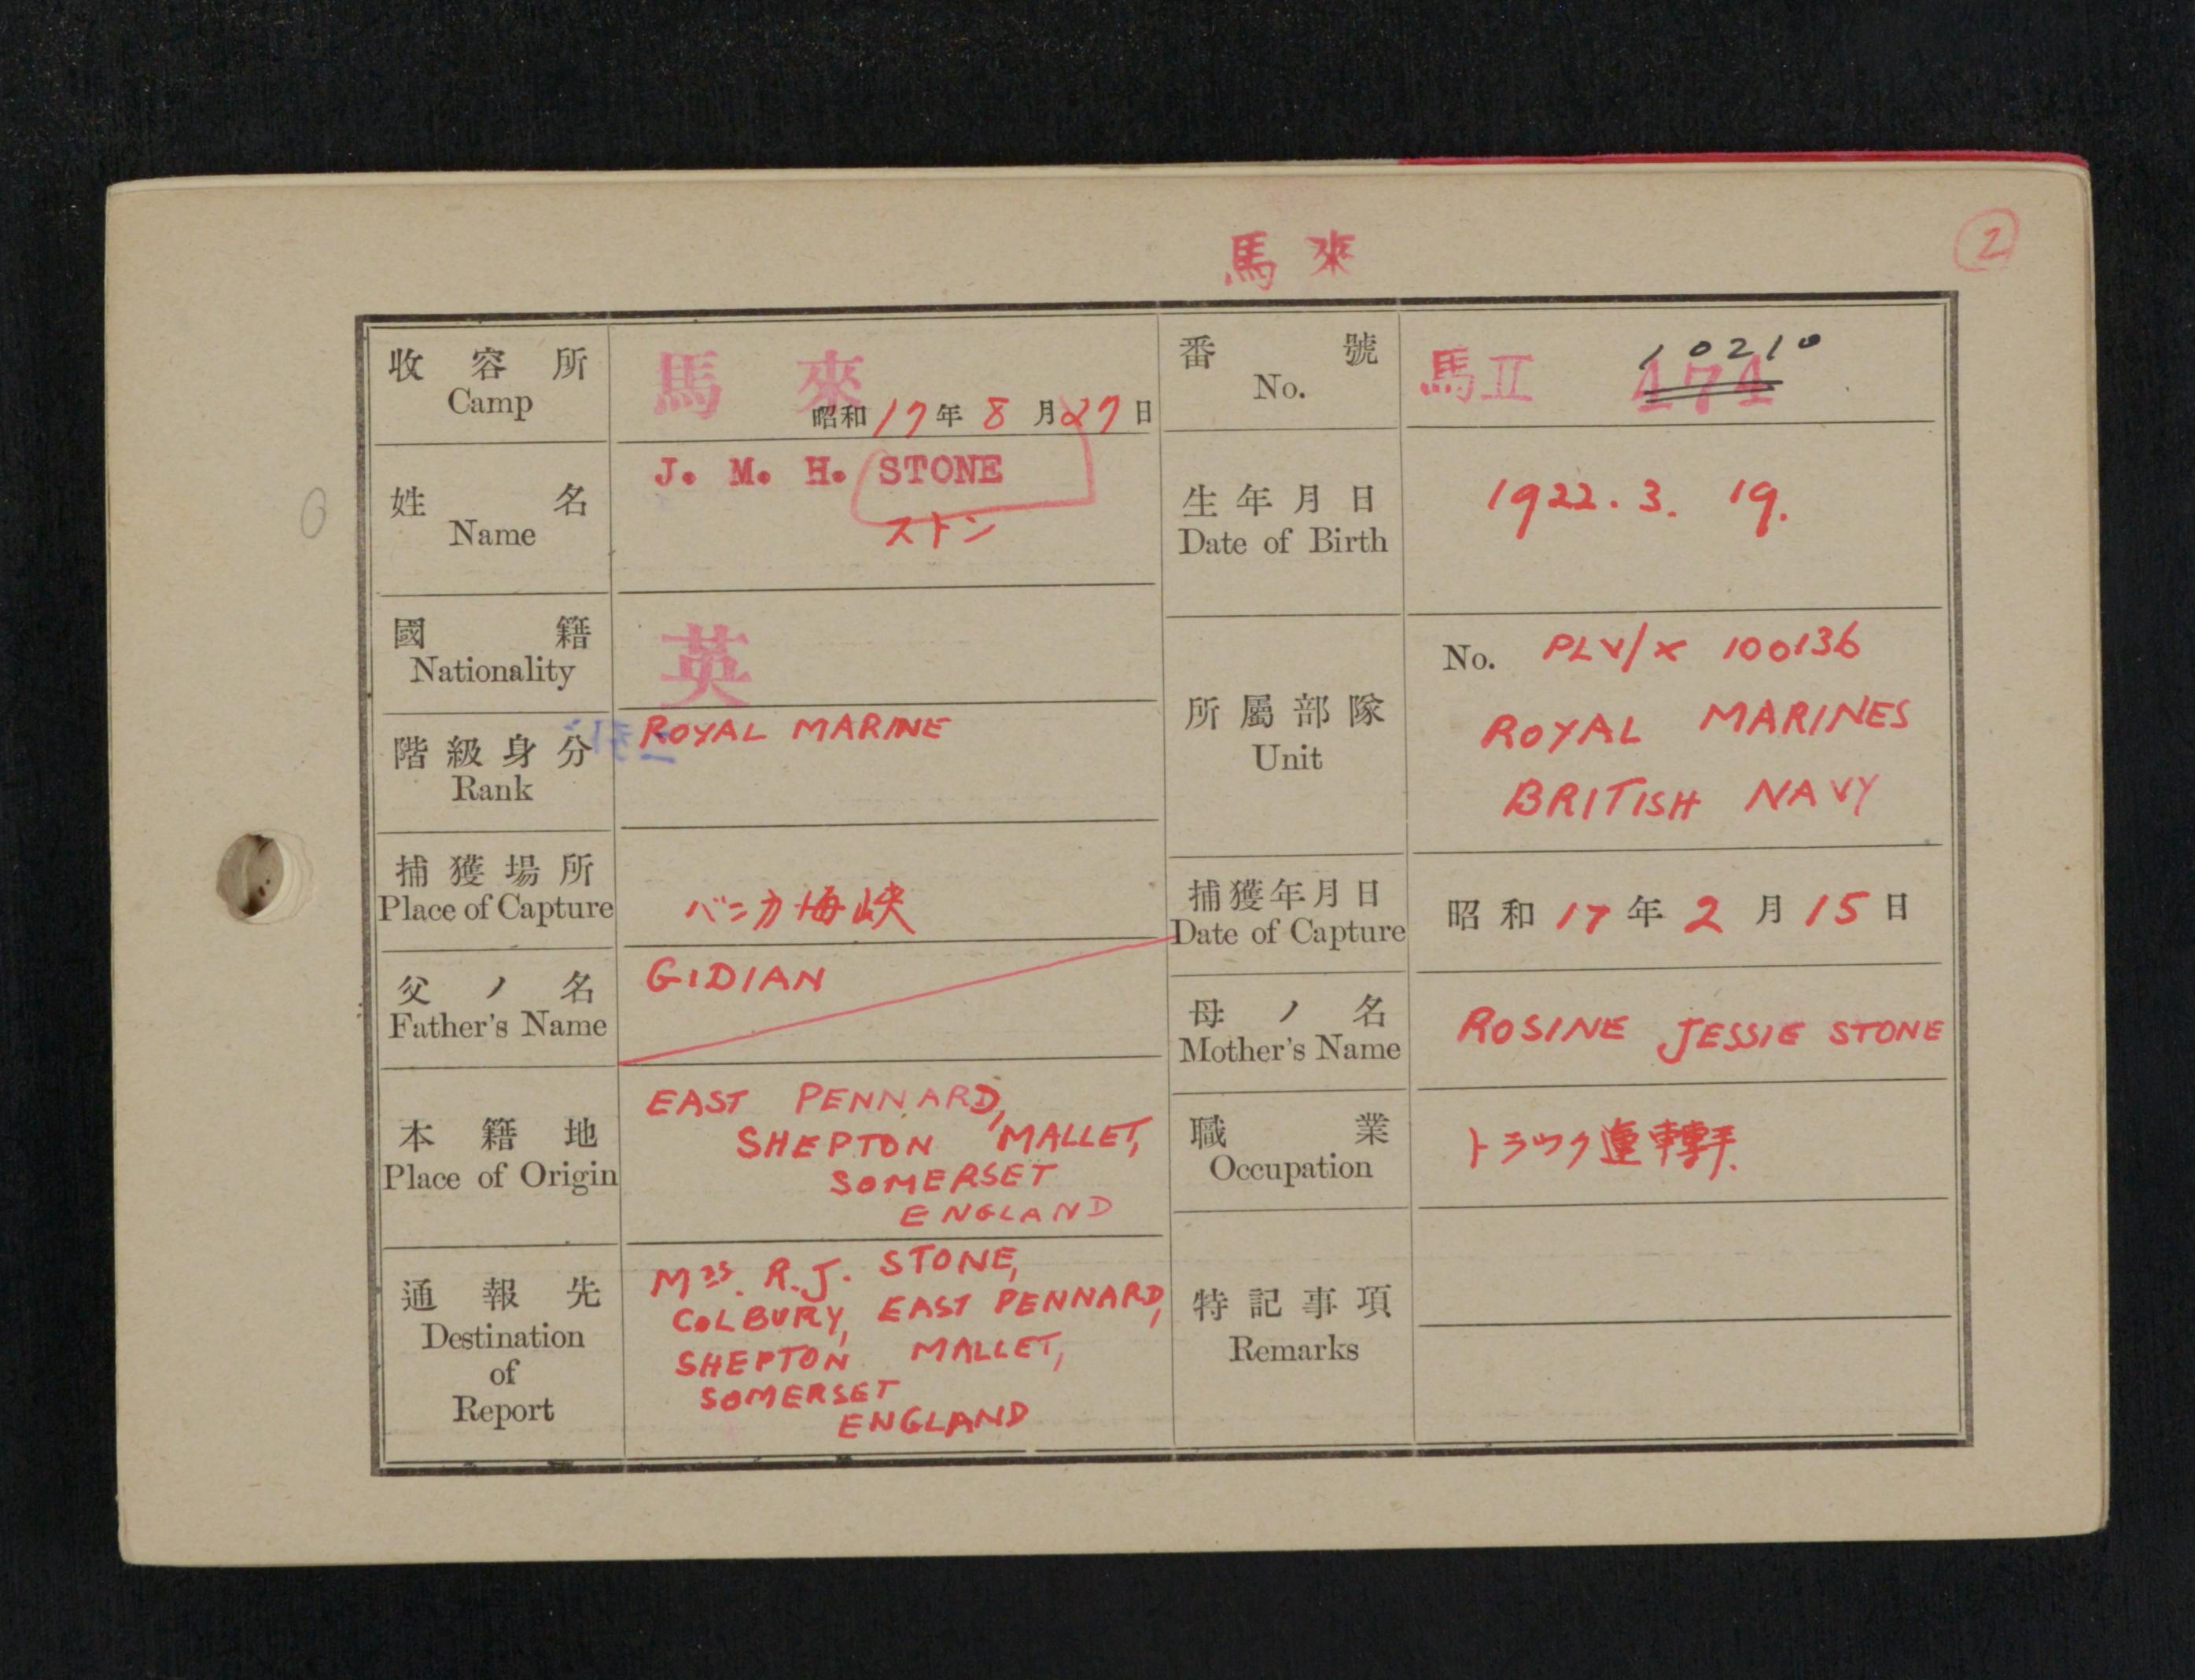 馬來
2
收容所
Camp
馬來
昭和17年8月27日
番號
No.
馬II 474
10210
姓名
Name
J. M. H. STONE
ストン
生年月日
Date of Birth
1922. 3. 19.
國籍
Nationality
英
階級身分
Rank
ROYAL MARINE
所屬部隊
Unit
No. PLY/X 100136
ROYAL MARINES
BRITISH NAVY
捕獲場所
Place of Capture
バンカ海峡
捕獲年月日
Date of Capture
昭和17年2月15日
父ノ名
Father's Name
GIDIAN
母ノ名
Mother's Name
ROSINE JESSIE STONE
本籍地
Place of Origin
EAST PENNARD,
SHEPTON MALLET,
SOMERSET
ENGLAND
職業
Occupation
トラック運轉手
通報先
Destination
of
Report
Mrs. R.J. STONE,
COLBURY, EAST PENNARD,
SHEPTON MALLET,
SOMERSET
ENGLAND
特記事項
Remarks